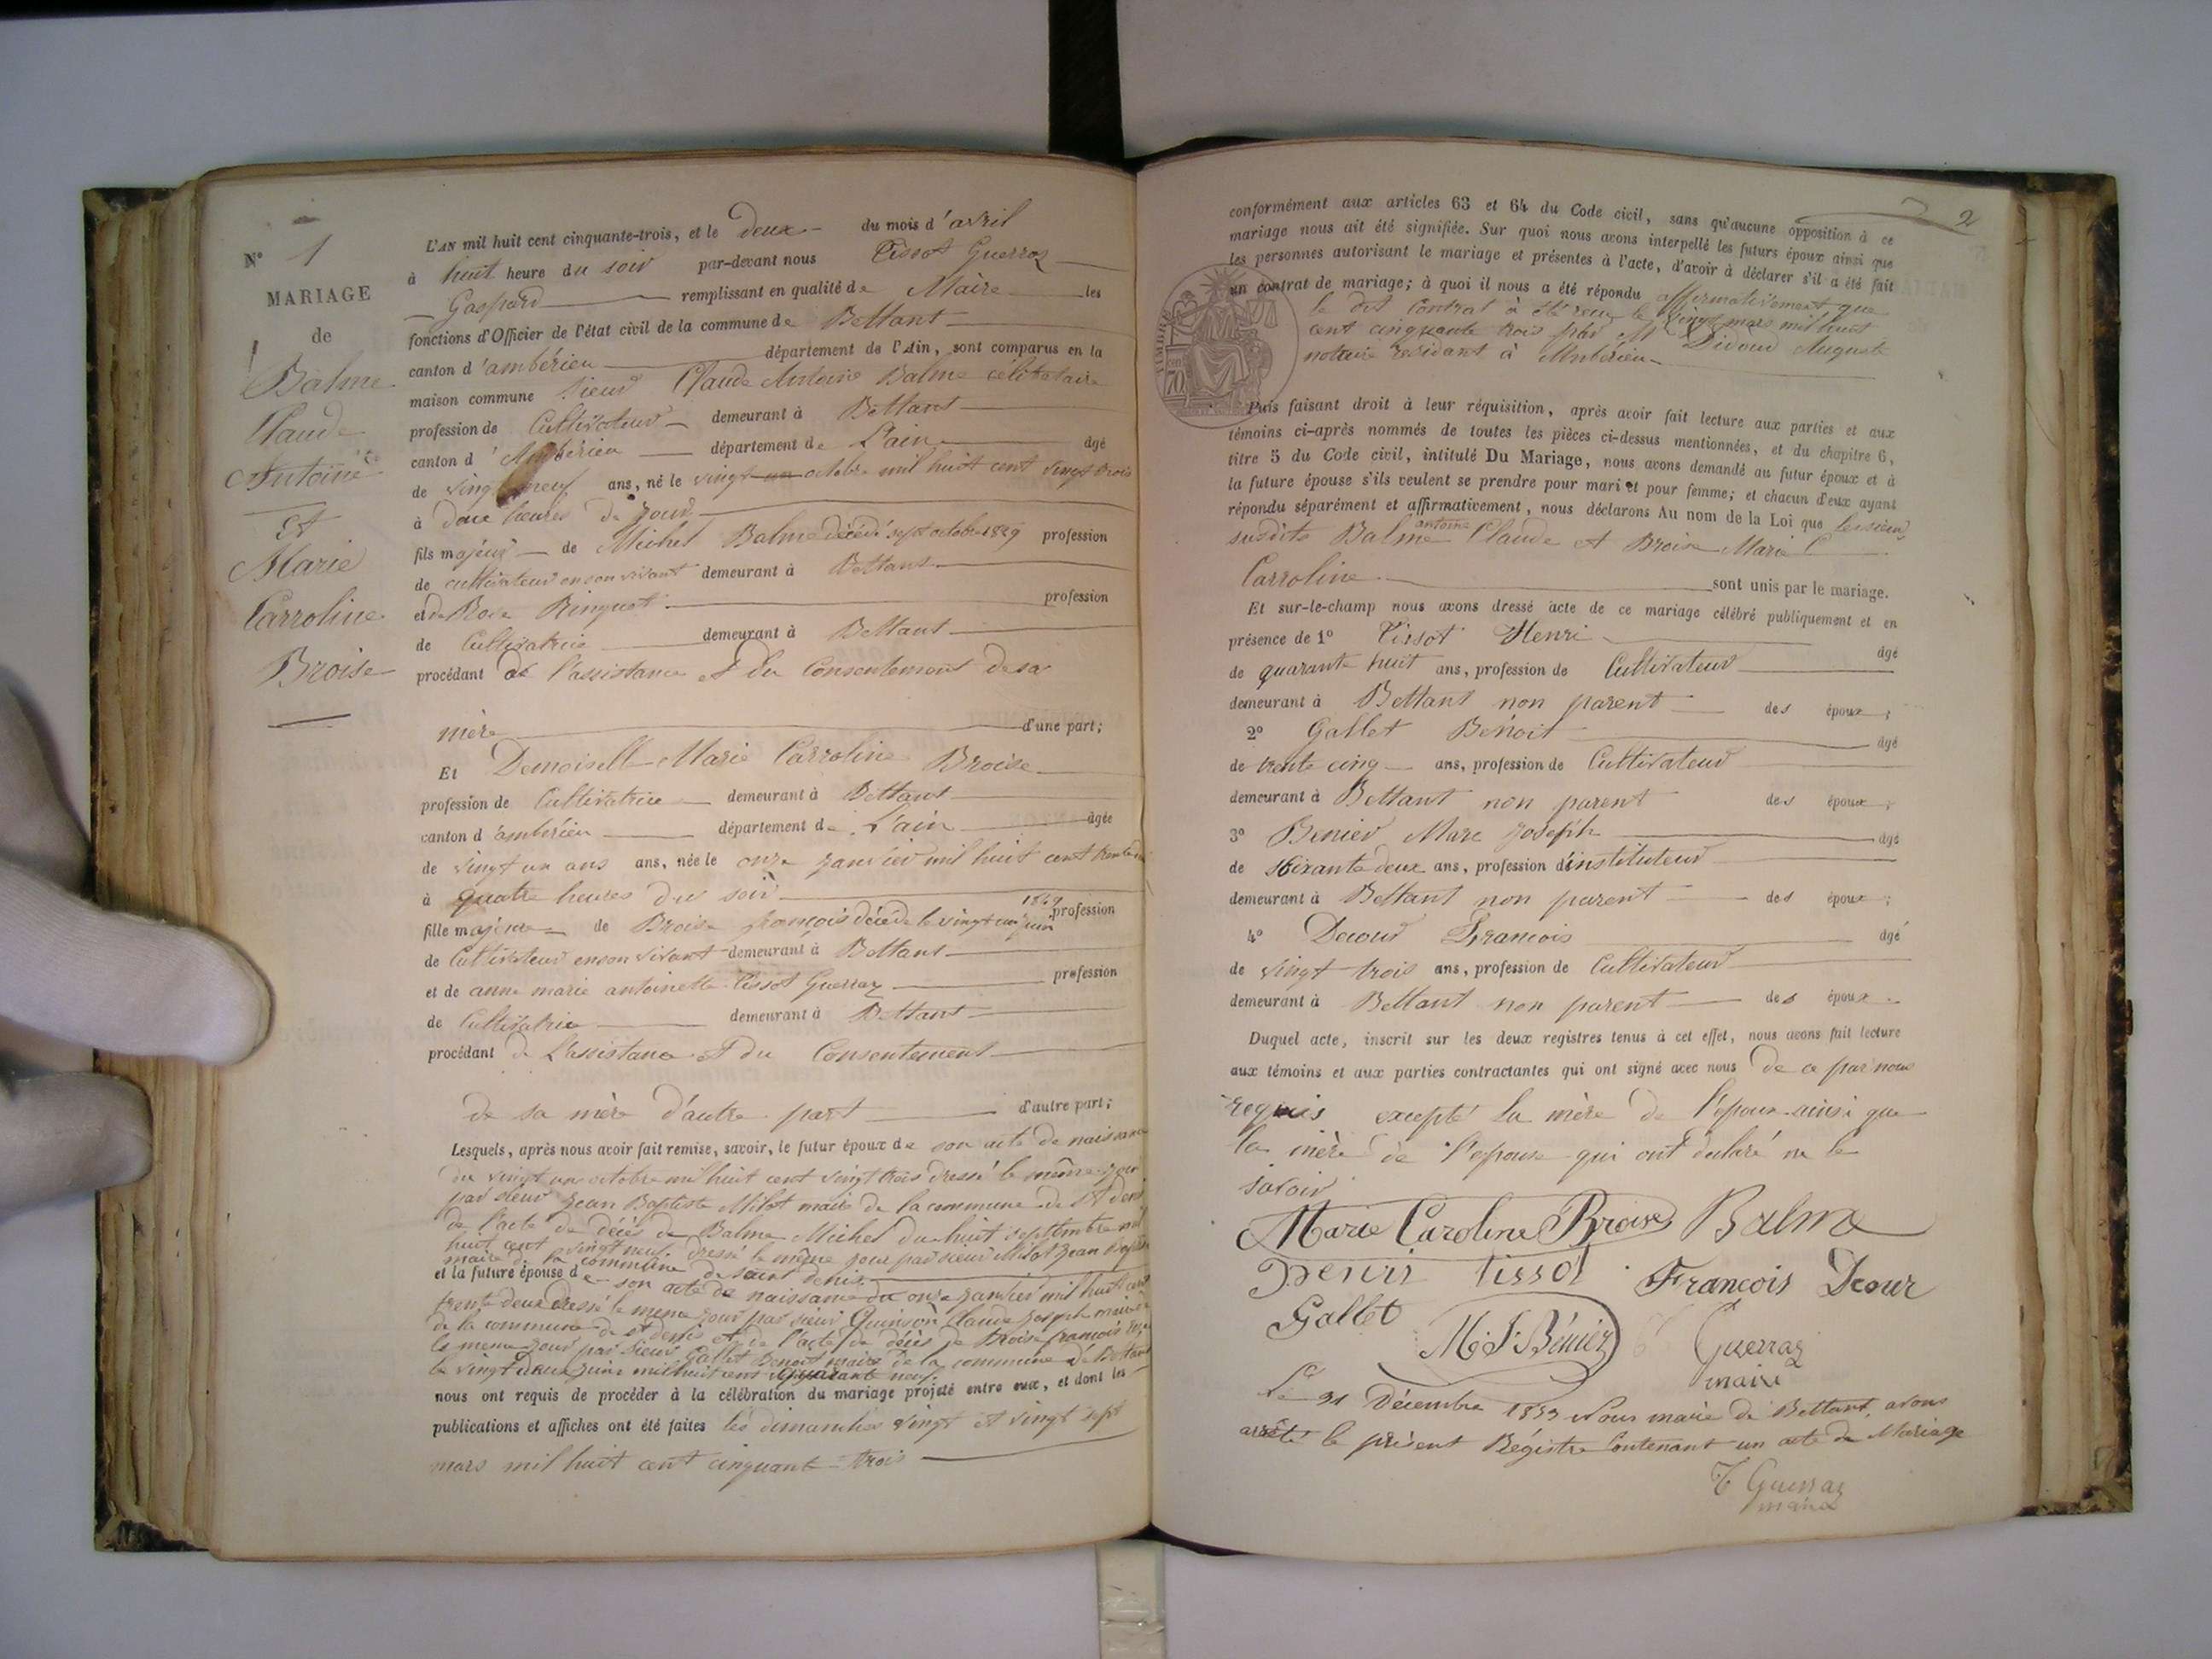 N° 1
MARIAGE
de
Balme
Claude
Antoine
Et
Marie
Carroline
Broise
L'AN mil huit cent cinquante-trois, et le deux du mois d'avril
à huit heure du soir par-devant nous Tissot Guerraz
Gaspard remplissant en qualité de Maire les
fonctions d'Officier de l'état civil de la commune de Bettant
canton d'ambérieu département de l'Ain, sont comparus en la
maison commune sieur Claude Antoine Balme célibataire
profession de Cultivateur demeurant à Bettant
canton d'Ambérieu département de L'ain âgé
de vingt neuf ans, né le vingt un octobre mil huit cent vingt trois
à douze heures du jour
fils majeur de Michel Balme décédé sept octobre 1829 profession
de cultivateur en son vivant demeurant à Bettant
et de Rose Ringuet profession
de Cultivatrice demeurant à Bettant
procédant de l'assistance et du Consentement de sa
mère d'une part;
Et Demoiselle Marie Carroline Broise
profession de Cultivatrice demeurant à Bettant
canton d'ambérieu département de L'ain âgée
de vingt un ans ans, née le onze janvier mil huit cent trente
à quatre heures du soir
fille majeure de Broise françois décédé le vingt un juin 1849 profession
de Cultivateur en son vivant demeurant à Bettant
et de anne marie antoinette Tissot Guerraz profession
de Cultivatrice demeurant à Bettant
procédant de L'assistance et du Consentement
de sa mère d'autre part d'autre part;
Lesquels, après nous avoir fait remise, savoir, le futur époux de son acte de naissance
du vingt un octobre mil huit cent vingt trois dressé le même jour
par sieur Jean Baptiste Milot maire de la commune de St denis
de l'acte de décès de Balme Michel du huit septembre mil
huit cent vingt neuf dressé le même jour par sieur Milot Jean Baptiste
maire de la commune de saint denis
et la future épouse de son acte de naissance du onze janvier mil huit cent
trente deux dressé le meme jour par sieur Quinson Claude joseph maire
de la commune de st denis et de l'acte de décès de Broise francois
le meme jour par sieur Gallet Benoit maire de la commune de Bettant
le vingt deux juin mil huit cent quarante neuf
nous ont requis de procéder à la célébration du mariage projeté entre eux, et dont les
publications et affiches ont été faites les dimanches vingt et vingt sept
mars mil huit cent cinquante trois
2
conformément aux articles 63 et 64 du Code cicil, sans qu'aucune opposition à ce
mariage nous ait été signifiée. Sur quoi nous avons interpellé les futurs époux ainsi que
les personnes autorisant le mariage et présentes à l'acte, d'avoir à déclarer s'il a été fait
un contrat de mariage; à quoi il nous a été répondu affirmativement que
le dit Contrat à été reçu le vingt mars mil huit
cent cinquante trois par Me Didour Auguste
notaire residant à Ambérieu
TIMBRE
70
Puis faisant droit à leur réquisition, après avoir fait lecture aux parties et aux
témoins ci-après nommés de toutes les pièces ci-dessus mentionnées, et du chapitre 6,
titre 5 du Code civil, intitulé Du Mariage, nous avons demandé au futur époux et à
la future épouse s'ils veulent se prendre pour mari et pour femme; et chacun d'eux ayant
répondu séparément et affirmativement, nous déclarons Au nom de la Loi que les sieurs
susdits Balme antoine Claude et Broise Marie C
Carroline sont unis par le mariage.
Et sur-le-champ nous avons dressé acte de ce mariage célébré publiquement et en
présence de 1° Tissot Henri âgé
de quarante huit ans, profession de Cultivateur
demeurant à Bettant non parent des époux;
2° Gallet Benoit âgé
de trente cinq ans, profession de Cultivateur
demeurant à Bettant non parent des époux;
3° Benier Marc Joseph âgé
de soixante deux ans, profession d'instituteur
demeurant à Bettant non parent des époux;
4° Decour Francois âgé
de vingt trois ans, profession de Cultivateur
demeurant à Bettant non parent des époux.
Duquel acte, inscrit sur les deux registres tenus à cet effet, nous avons fait lecture
aux témoins et aux parties contractantes qui ont signé avec nous de ce par nous
requis excepté la mère de l'epoux ainsi que
la mère de l'epouse qui ont déclaré ne le
savoir
Marie Caroline Broise Balme
Henri tissot François Dcour
Gallet M. J. Bénier Guerraz
maire
Le 31 Décembre 1853 Nous maire de Bettant, avons
arrêté le présent Régistre Contenant un acte de Mariage
T Guerraz
maire